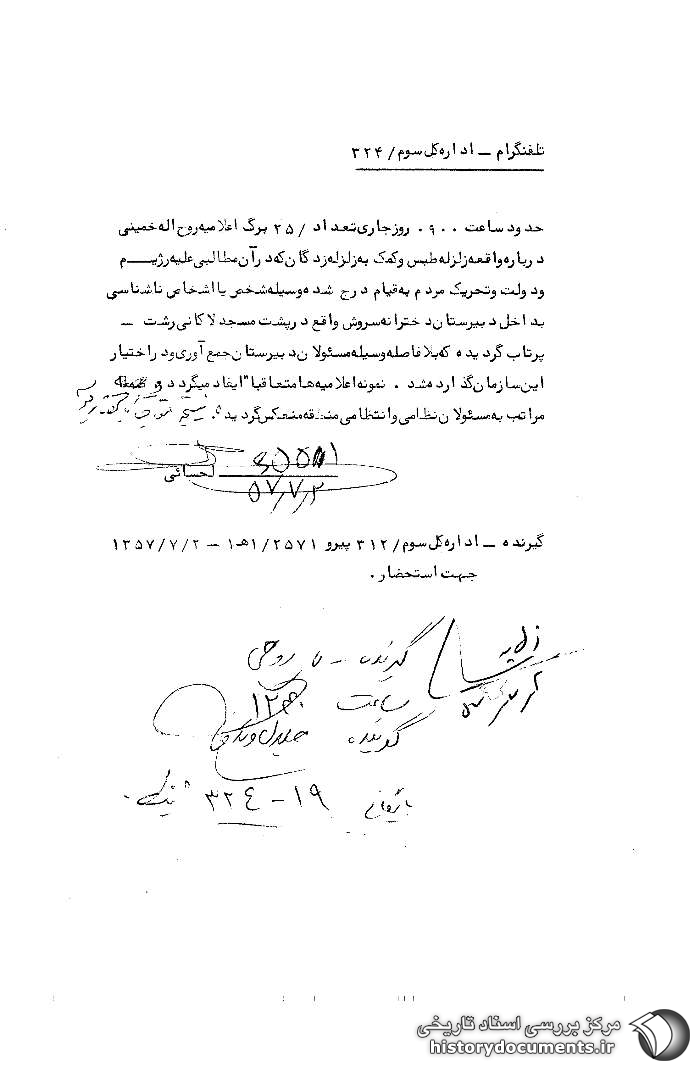 تلفنگرام – اداره کل سوم / ۳۲۴
حدود ساعت ۹۰۰ روز جاری تعداد / ۲۵ برگ اعلامیه روح اله خمینی
درباره واقعه زلزله طبس وکمک به زلزله زدگان که در آن مطالبی علیه رژیم
ودولت وتحریک مردم به قیام درج شده وسیله شخص یا اشخاص ناشناسی
بداخل دبیرستان دخترانه سروش واقع در پشت مسجد لاکانی رشت –
پرتاب گردیده که بلافاصله وسیله مسئولان دبیرستان جمع آوری ودر اختیار
این سازمان گذارده شد . نمونه اعلامیه ها متعاقبا" ایفاد میگردد و
مراتب به مسئولان نظامی وانتظامی منطقه منعکس گردیده.
احسائی
۵۷/۷/۲
گیرنده – اداره کل سوم / ۳۱۲ پیرو ۲۵۷۱ / ۱هـ۱ – ۱۳۵۷/۷/۲
جهت استحضار .
گیرنده – روحی
ساعت
گوینده
بایگانی ۱۹-۳۲۴
مرکز بررسی اسناد تاریخی
historydocuments.ir